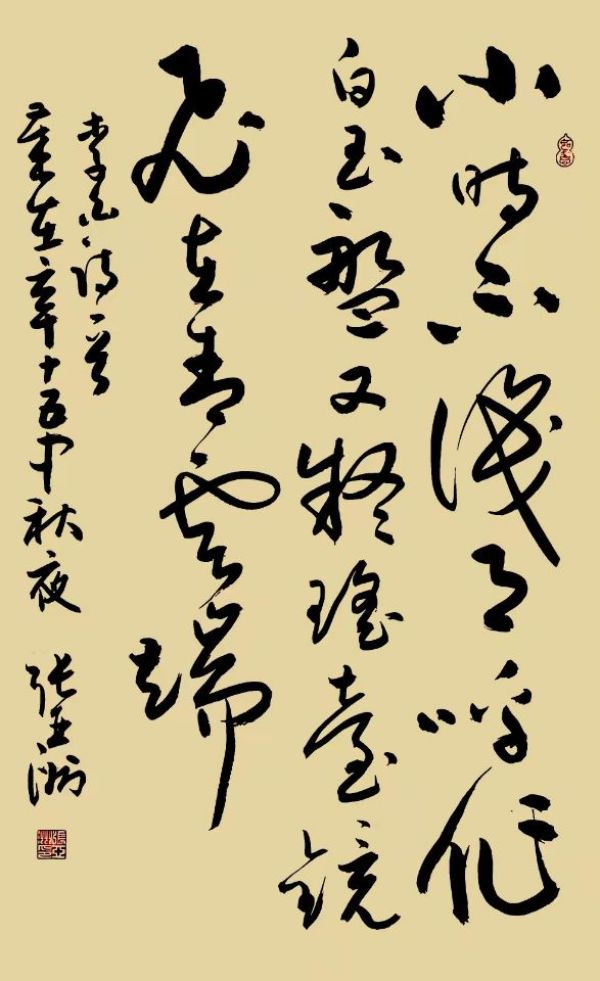 小時不識月呼作
白玉盤又疑瑤臺鏡
飛在青雲端
李白詩一首
在十五中秋夜 張亞洲